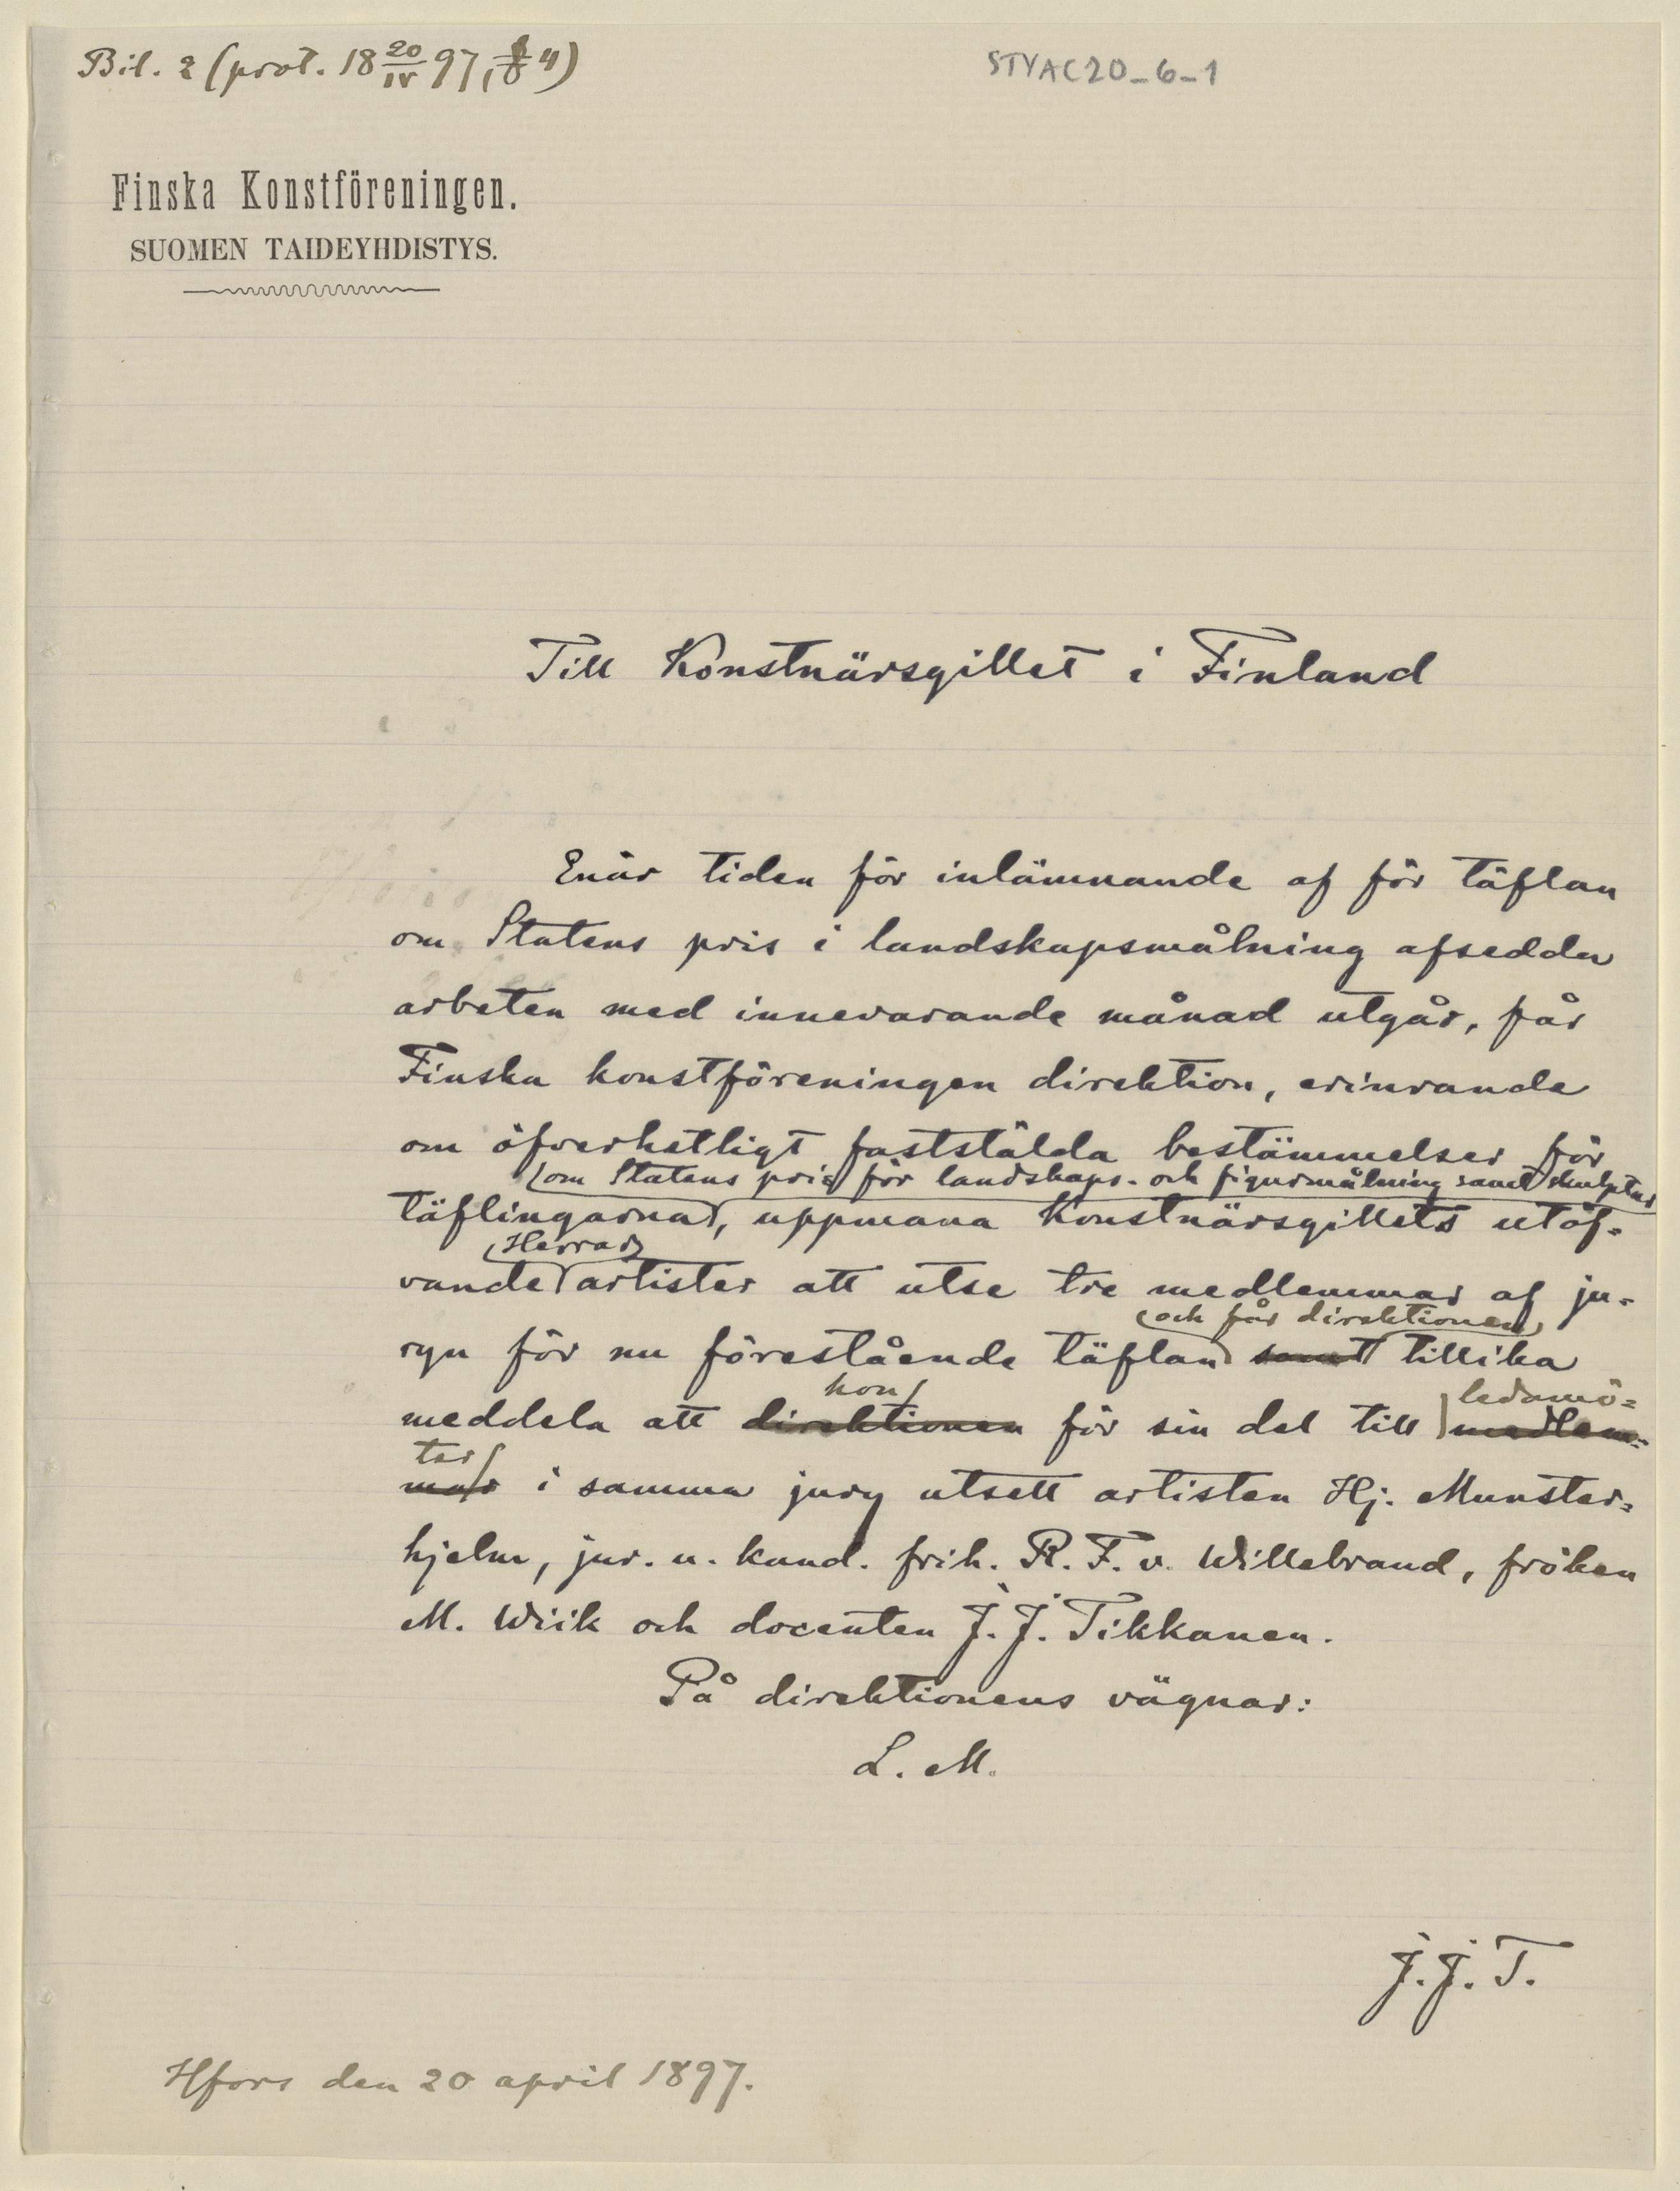 Bil. 2 (prot. 18 20/IV 97, § 4)
STYAC20-6-1
Finska Konstföreningen.
SUOMEN TAIDEYHDISTYS.
Till Konstnärsgillet i Finland
Enär tiden för inlämnande af för täflan
om Statens pris i landskapsmålning afsedda
arbeten med innevarande månad utgår, får
Finska konstföreningen direktion, erinrande
om öfverhetligt faststälda bestämmelser för
om Statens pris för landskaps- och figurmålning samt skulptur
täflingarna, uppmana Konstnärsgillets utöf-
Herrar
vande artister att utse tre medlemmar af ju-
och får direktionen
ryn för nu förestående täflan samt tillika
hon ledamö-
meddela att direktionen för sin del till medlem-
ter
mar i samma jury utsett artisten Hj. Munster-
hjelm, jur. u. kand. frih. R. F. v. Willebrand, fröken
M. Wiik och docenten J. J. Tikkanen.
På direktionens vägnar:
L. M.
J. J. T.
Hfors den 20 april 1897.